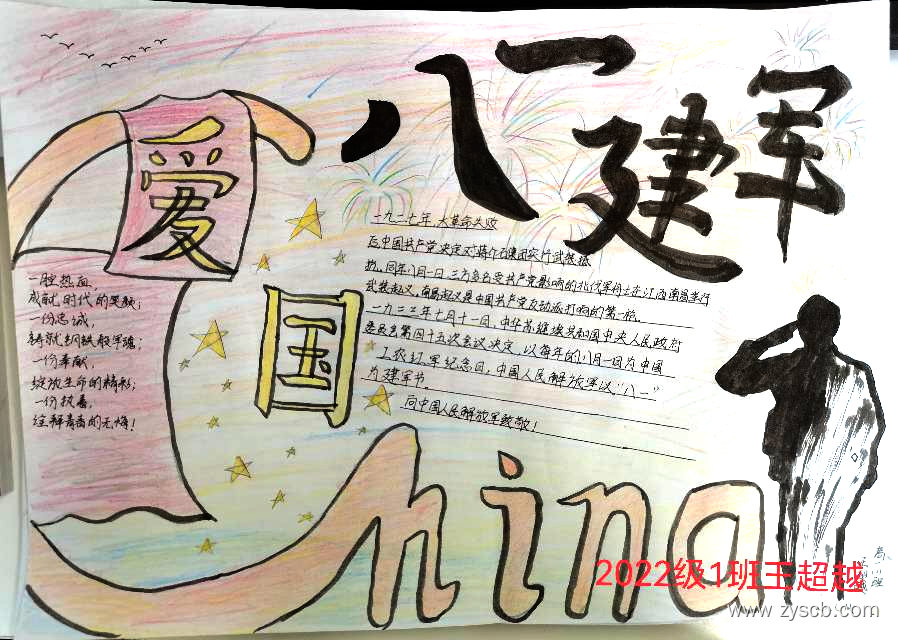 八一建军
爱
国
一腔热血,
成就时代的奖献;
一份忠诚,
铸就钢铁般军魂;
一份奉献,
绽放生命的精彩;
一份执着,
诠释青春的无悔!
一九二七年,大革命失败
后中国共产党决定对蒋介石集团实行武装抵
抗。同年八月一日,三万多名受共产党影响的北伐军将士在江西南昌举行
武装起义,南昌起义是中国共产党反动派打响的第一枪。
一九三三年七月十一日,中华苏维埃共和国中央人民政府
委员会第四十五次会议决定,以每年的八月一日为中国
工农红军纪念日,中国人民解放军以“八一”
为建军节
向中国人民解放军致敬!
China
高一1班
2022级1班王超越
www.zyscb.com